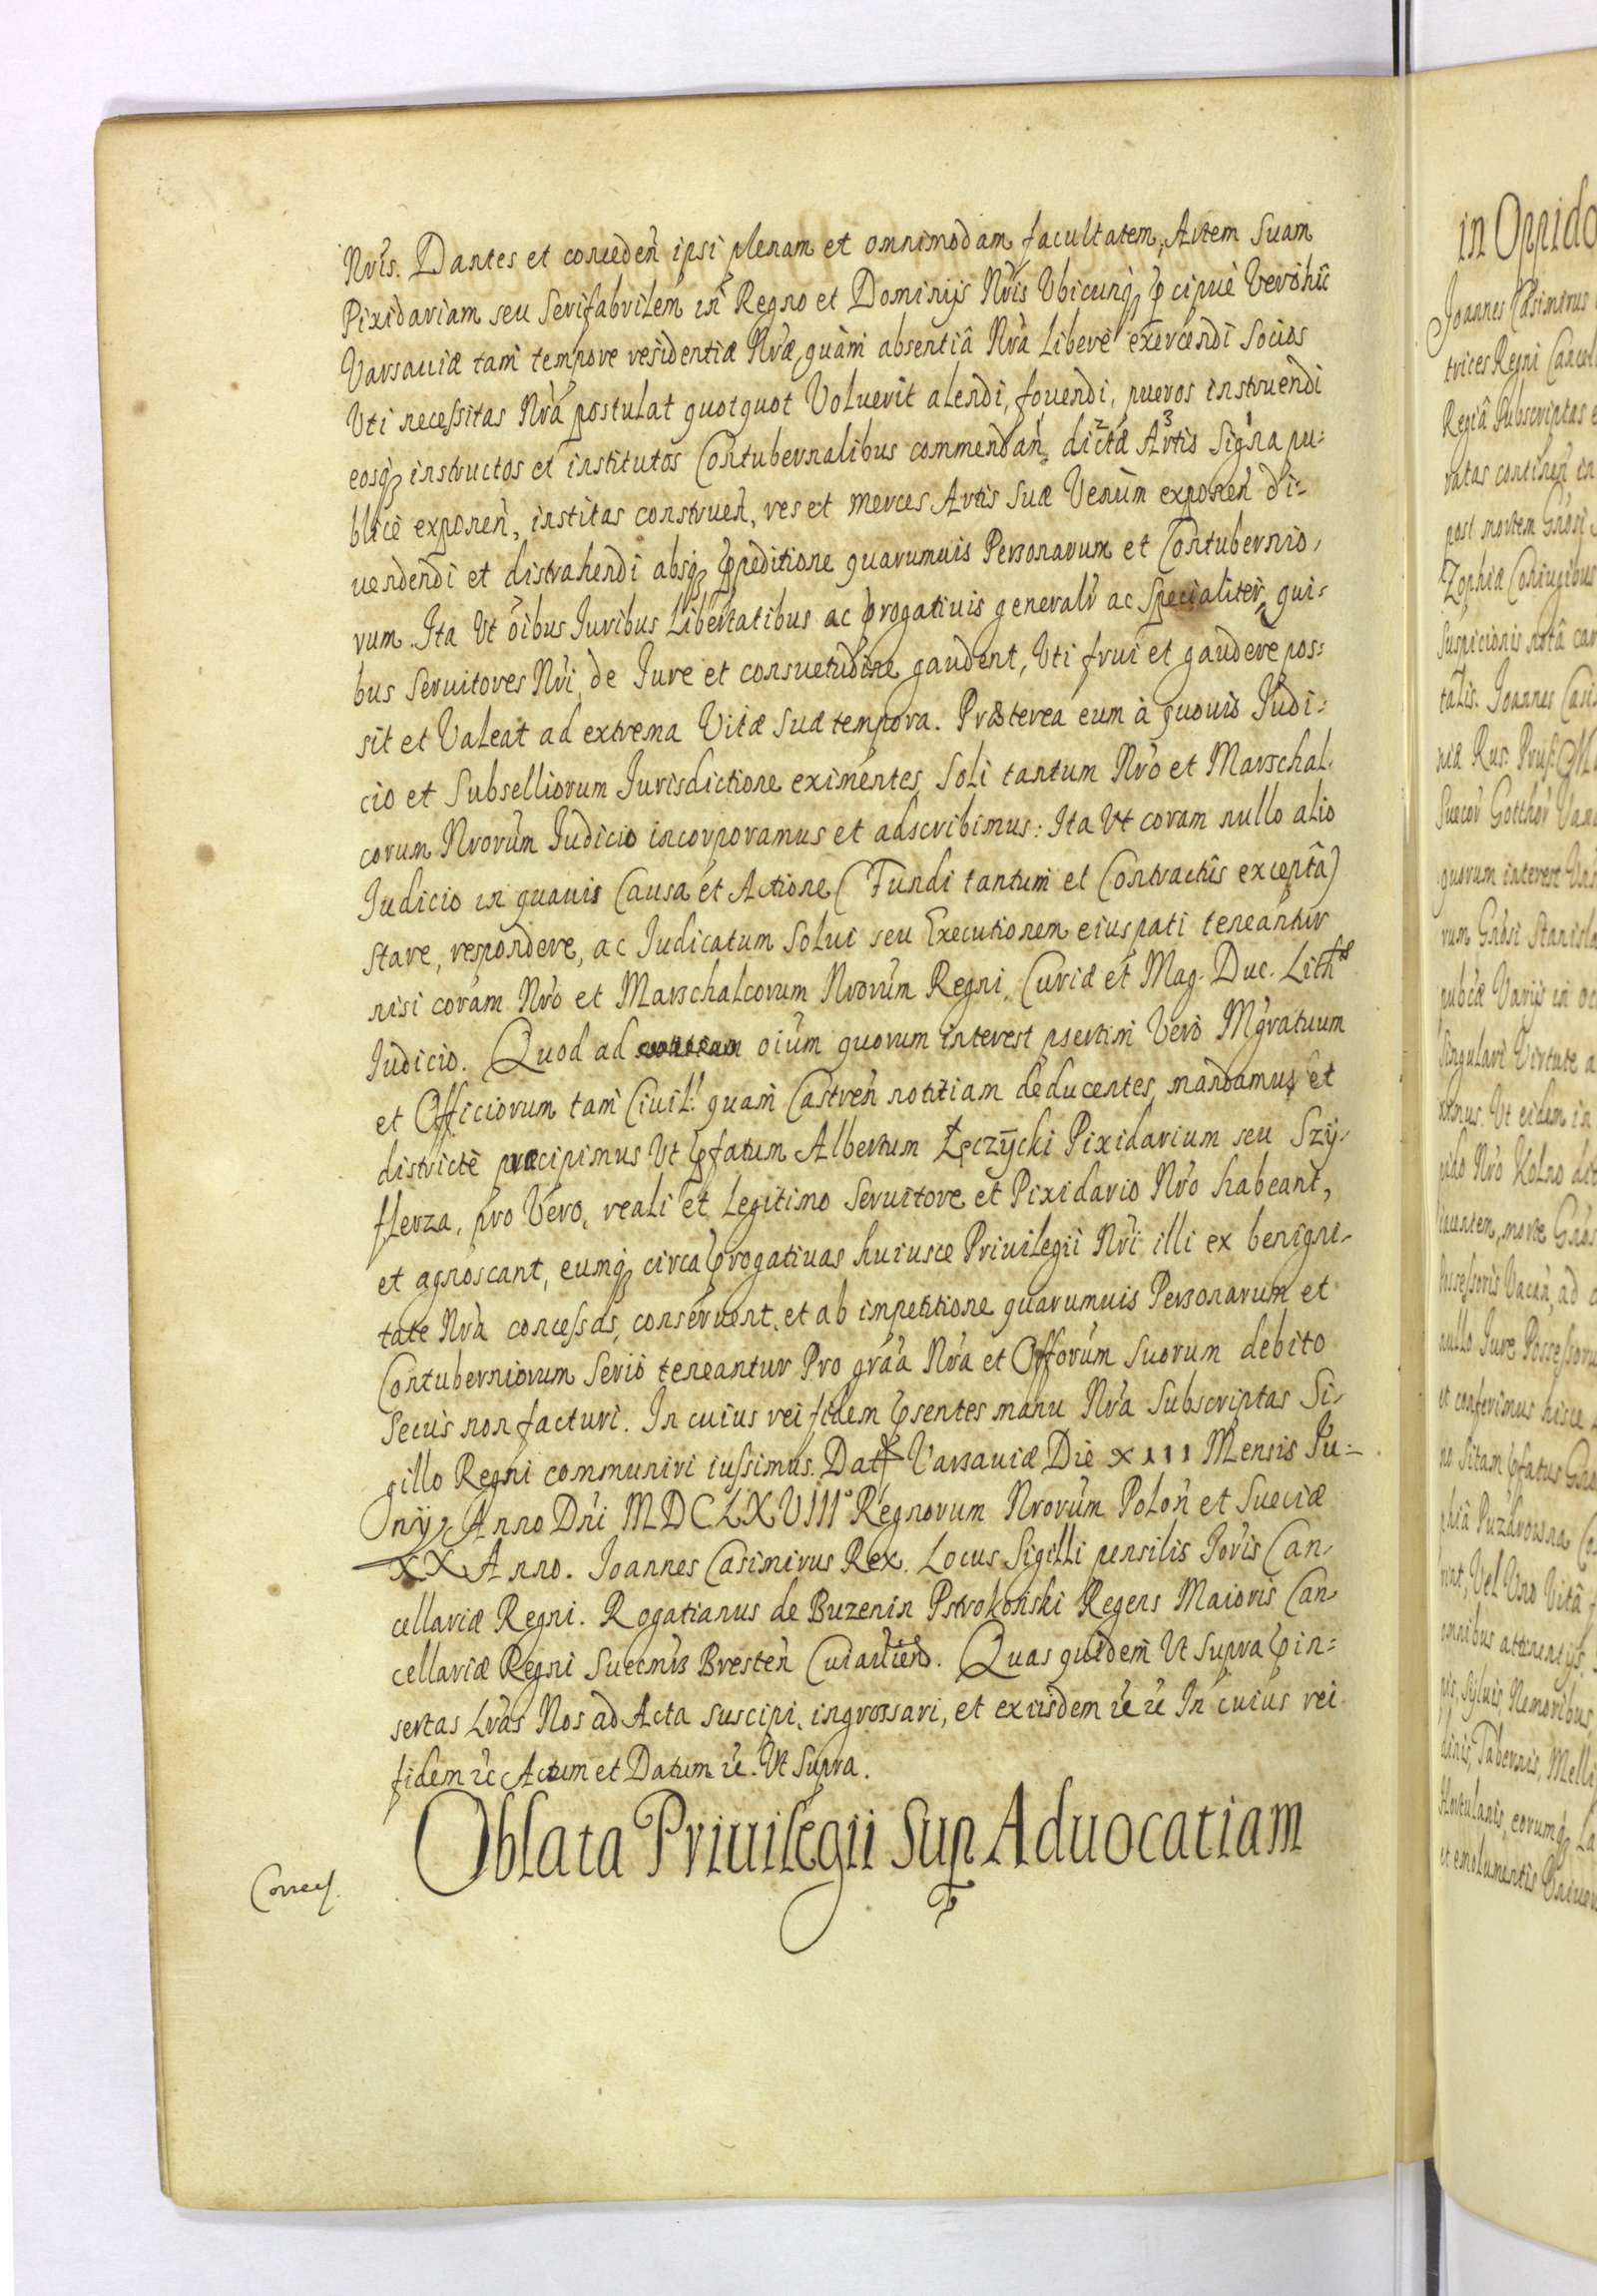 Nris. Dantes et conceden̄ ipsi plenam et omnimodam facultatem, Artem Suam
Pixidariam seu Serifabrilem in Regno et Dominijs Nris Vbicunq̨ p̄cipuè Verò hîc
Varsauiæ tam tempore residentiæ Nræ, quàm absentiâ Nrâ Liberè exercendi Socios
Vti necessitas Nrâ postulat quotquot Voluerit alendi, fouendi, pueros instruendi
eosq̨ instructos et institutos Contubernalibus commendan̄, dictæ 2 Artis 3 Signa 1 pu=
blicè exponen̄, institas construen̄, res et merces Artis Suæ Venùm exponen̄ di=
uendendi et distrahendi absq̨ p̄peditione quarumuis Personarum et Contubernio,
rum. Ita Vt oībus Iuribus Libertatibus ac p̄rogatiuis generalr̄ ac Specialiter, qui=
bus Seruitores Nri, de Iure et consuetudine gaudent, Vti frui et gaudere pos=
sit et Valeat ad extrema Vitæ Suæ tempora. Præterea eum à quouis Iudi=
cio et Subselliorum Iurisdictione eximentes, Soli tantum Nro et Marschal,
corum Nrorum Iudicio incorporamus et adscribimus: Ita Vt coram nullo alio
Iudicio in quauis Causa et Actione (Fundi tantum et Contractûs exceptâ)
stare, respondere, ac Iudicatum Solui seu Executionem eius pati teneantur
nisi coram Nro et Marschalcorum Nrorum Regni, Curiæ et Mag. Duc. Lith
Iudicio. Quod ad oium quorum interest psertim Verò Mgratuum
et Officiorum tam Ciuil. quam Castren̄ notitiam deducentes, mandamus, et
districtè præcipimus Vt p̄fatum Albertum Łęczÿcki Pixidarium seu Szÿ,
flerza, pro Vero, reali et Legitimo Seruitore et Pixidario Nro habeant,
et agnoscant, eumq̨ circa p̄rogatiuas huiusce Priuilegii Nri illi ex benigni,
tate Nrâ concessas, conseruent, et ab impetitione quarumuis Personarum et
Contuberniorum Seriò teneantur Pro grāa Nra et Offorum Suorum debito
Secùs non facturi. In cuius rei fidem p̄sentes manu Nra Subscriptas Si,
gillo Regni communiri iussimus. Dat Varsauiæ Die XIII Mensis Iu=
nÿ Anno Dni MDCLXVIII° Regnorum Nrorum Polon̄ et Sueciæ
XX Anno. Ioannes Casimirus Rex. Locus Sigilli pensilis Ioris Can,
cellariæ Regni. Rogatianus de Buzenin Pstrokoński Regens Maioris Can
cellariæ Regni Bresten̄. Quas quidem Vt Supra p̄ in=
sertas Lras Nos ad Acta suscipi, ingrossari, et exiisdem &c &c In cuius rei
fidem &c Actum et Datum &c. Vt Supra.
Oblata Priuilegii Sup Aduocatiam
in Oppido
Joannes Casimirus
trices Regni Cancel
Regiâ Subscriptas e
post mortem Gnosi
Zophiæ Coniugibus
talis. Joannes Casi
quorum interest
rum Gnosi Stanisla
Singulari Virtute a
nullo Iure Possessoru
et conferimus hisce